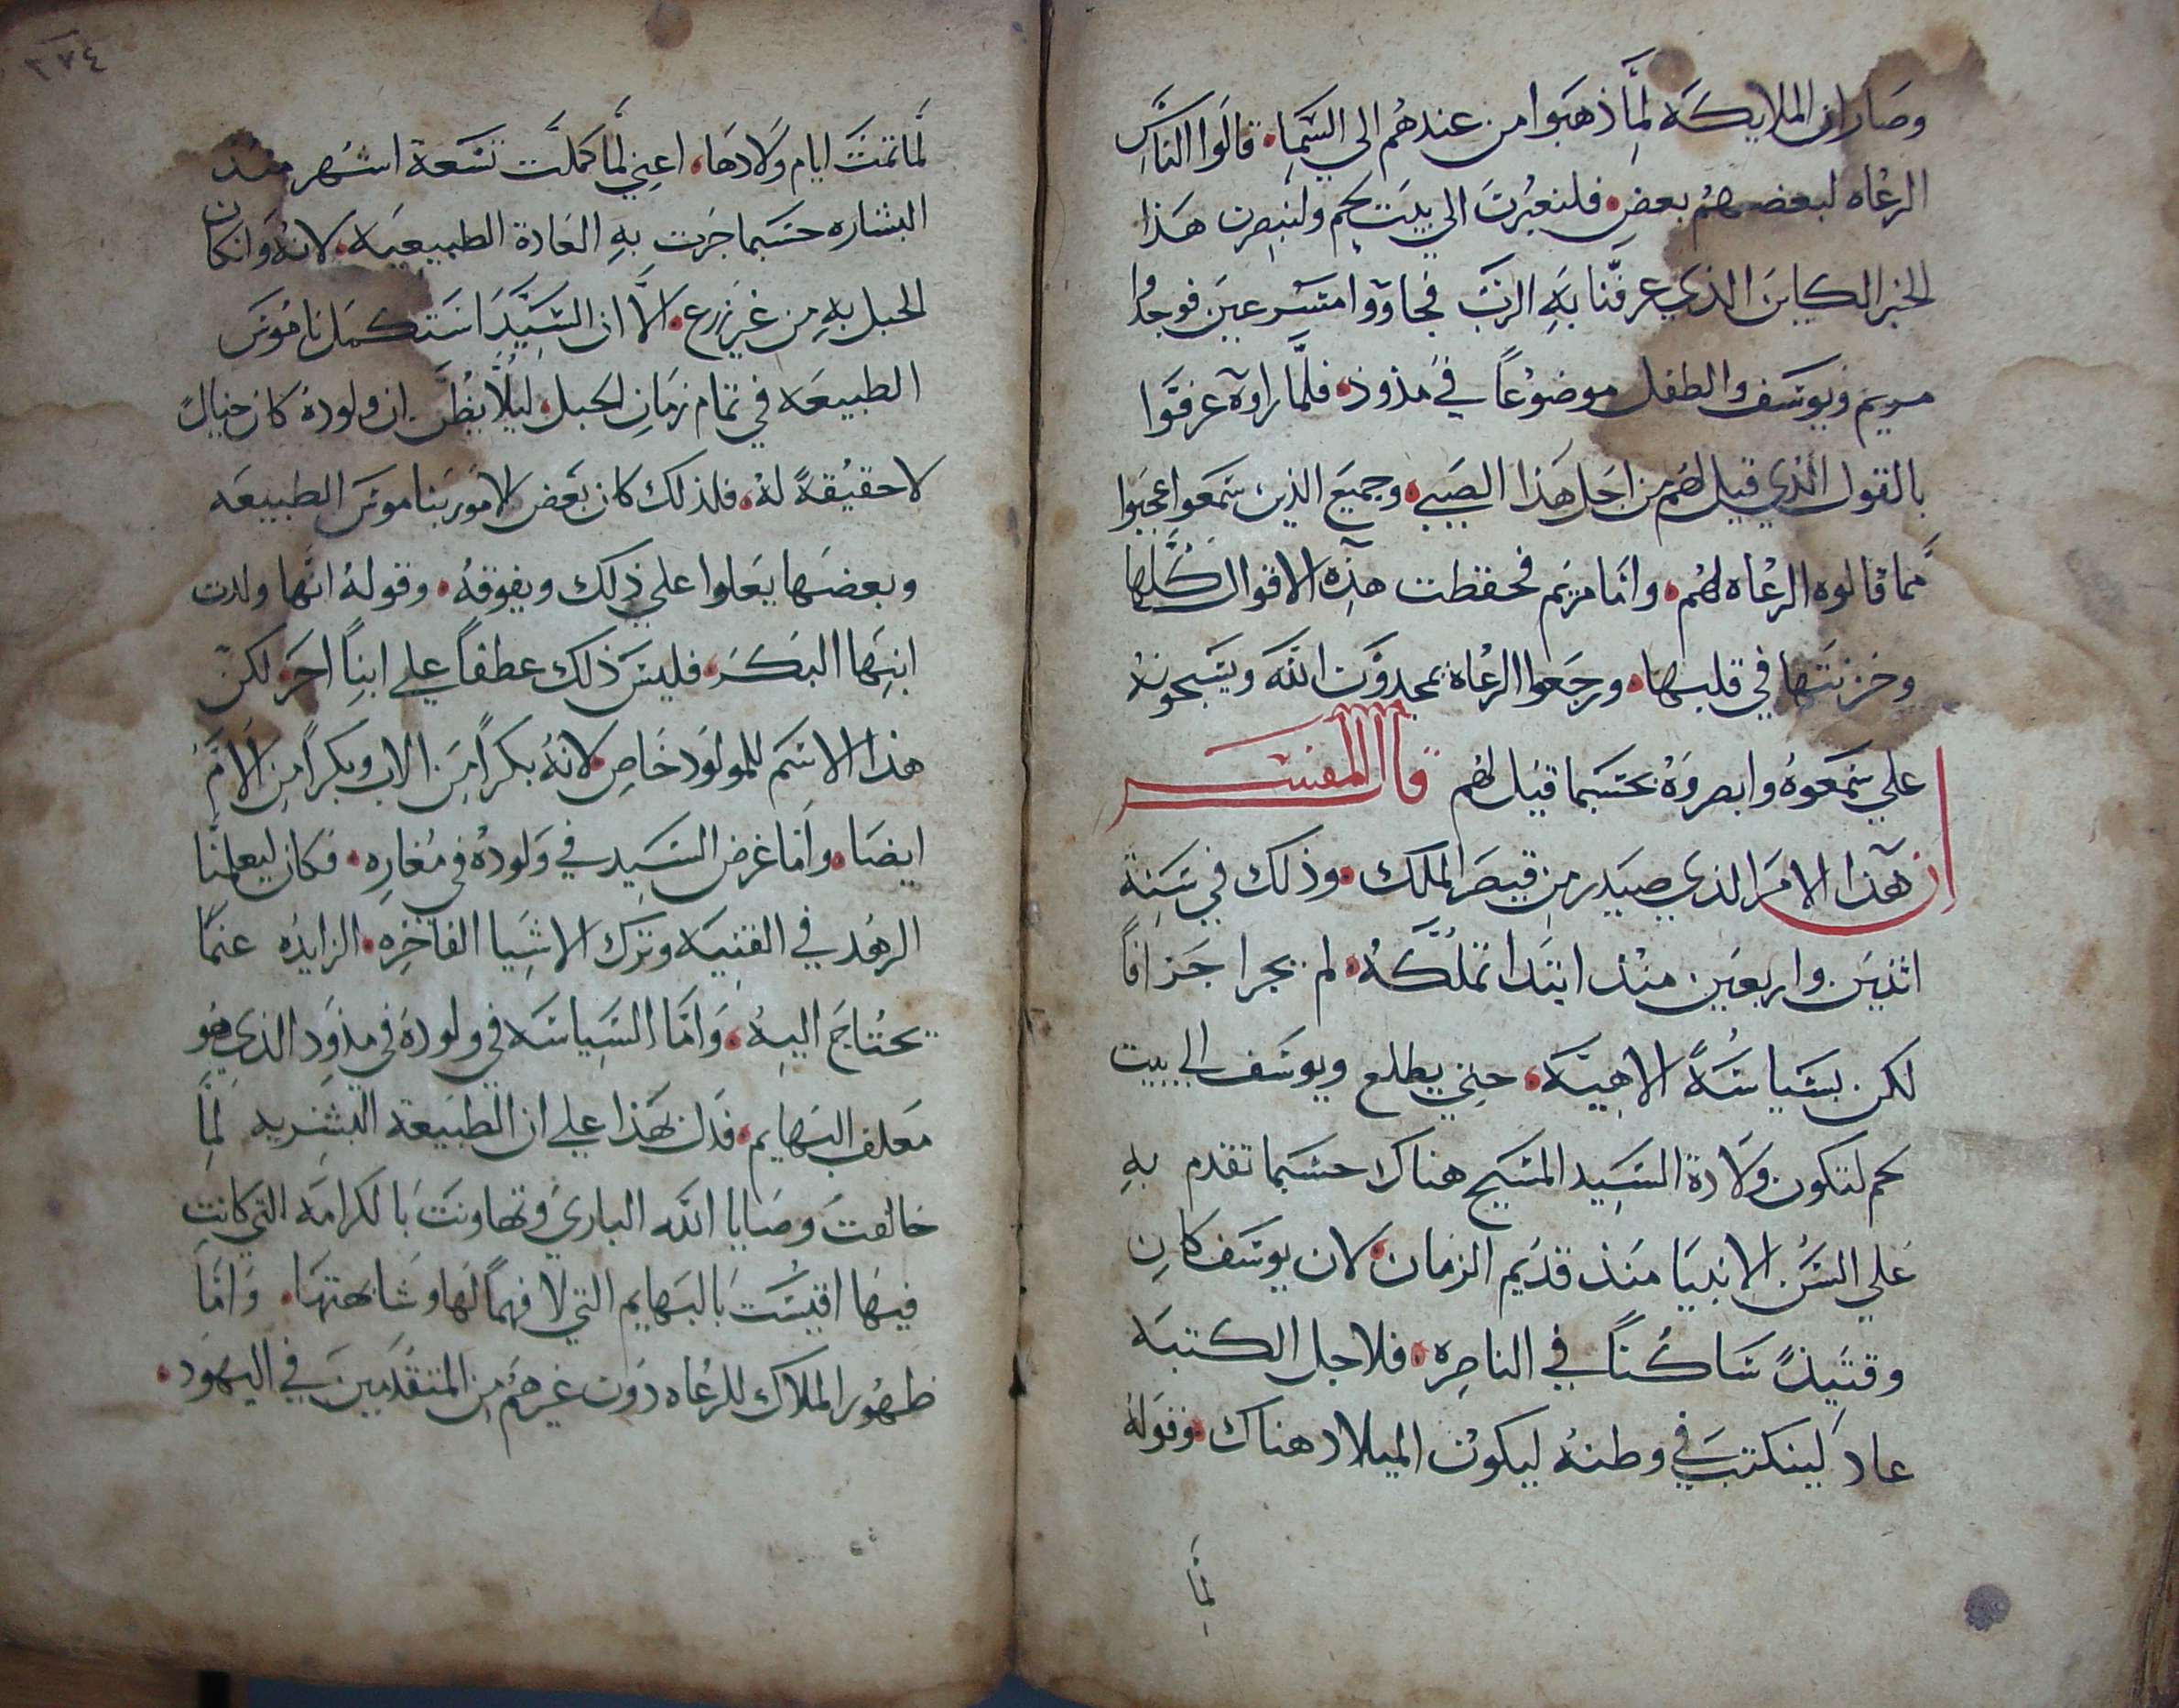 وصار ان الملايكه لما ذهبوا من عندهم الى السما. قالوا الناس
الرعاه لبعضهم بعض. فلنعبرن الي بيت لحم ولنبصرن هذا
الخبر الكاين الذي عرفنا به الرب فجاووا مسرعين فوجدوا
مريم ويوسف والطفل موضوعاً في مذود. فلما راوه عرفوا
بالقول الذي قيل لهم من اجل هذا الصبي. وجميع الذين سمعوا عجبوا
مما قالوه الرعاه لهم. واما مريم فحفظت هذه الاقوال كلها
وخزنتها في قلبها. ورجعوا الرعاة يمجدون الله ويسبحونه
علي سمعوه وابصروه بحسبما قيل لهم قال المفسر
ان هذا الامر الذي صدر من قيصر الملك. وذلك في سنة
اثنين واربعين منذ ابتدا تملكه. لم يجرا جزافاً
لكن بسياسةً الاهية. حتي يطلع ويوسف الي بيت
لحم لتكون ولادة السيد المسيح هناك حسبما تقدم به
علي السن الانبيا منذ قديم الزمان. لان يوسف كان
وقتيذً ساكناً في الناصره. فلاجل الكتبه
عاد لينكتب في وطنه ليكون الميلاد هناك. وقوله
لما
٢٧٤
لما تمت ايام ولادها. اعني لما كملت تسعة اشهر منذ
البشاره حسبما جرت به العادة الطبيعيه. لانه وان كان
الحبل به من غير زرع. الا ان السيد استكمل ناموس
الطبيعه في تمام زمان الحبل. ليلا يظن ان ولوده كان خيال
لا حقيقةً له. فلذلك كان بعض الامور بناموس الطبيعه
وبعضها يعلوا علي ذلك ويفوقه. وقوله انها ولدت
ابنها البكر. فليس ذلك عطفاً علي ابناً اخر. لكن
هذا الاسم للمولود خاص. لانه بكراً من الاب وبكراً من الام
ايضا. واما غرض السيد في ولوده في مغاره. فكان ليعلمنا
الزهد في القنيه وترك الاشيا الفاخره. الزايده عنما
يحتاج اليه. واما السياسه في ولوده في مذود الذي هو
معلف البهايم. فدل بهذا علي ان الطبيعة البشريه لما
خالفت وصايا الله الباري وتهاونت بالكرامه التي كانت
فيها اقيست بالبهايم التي لا فهماً لها وشابهتها. واما
ظهور الملاك للرعاه دون غيرهم من المتقدمين في اليهود.